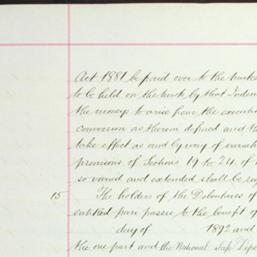 Act 1881 be paid over to the
to be held on the by that Inden
the moneys to arise from the execution
conversion as therein defined and th
take effect as and by way of
provisions of Sections 19 to 24 of
so varied and extended shall be
15 The holders of the Debentures of
entitled pari passu to the benefit of
day of 1892 and
the one part and the National Safe Depo